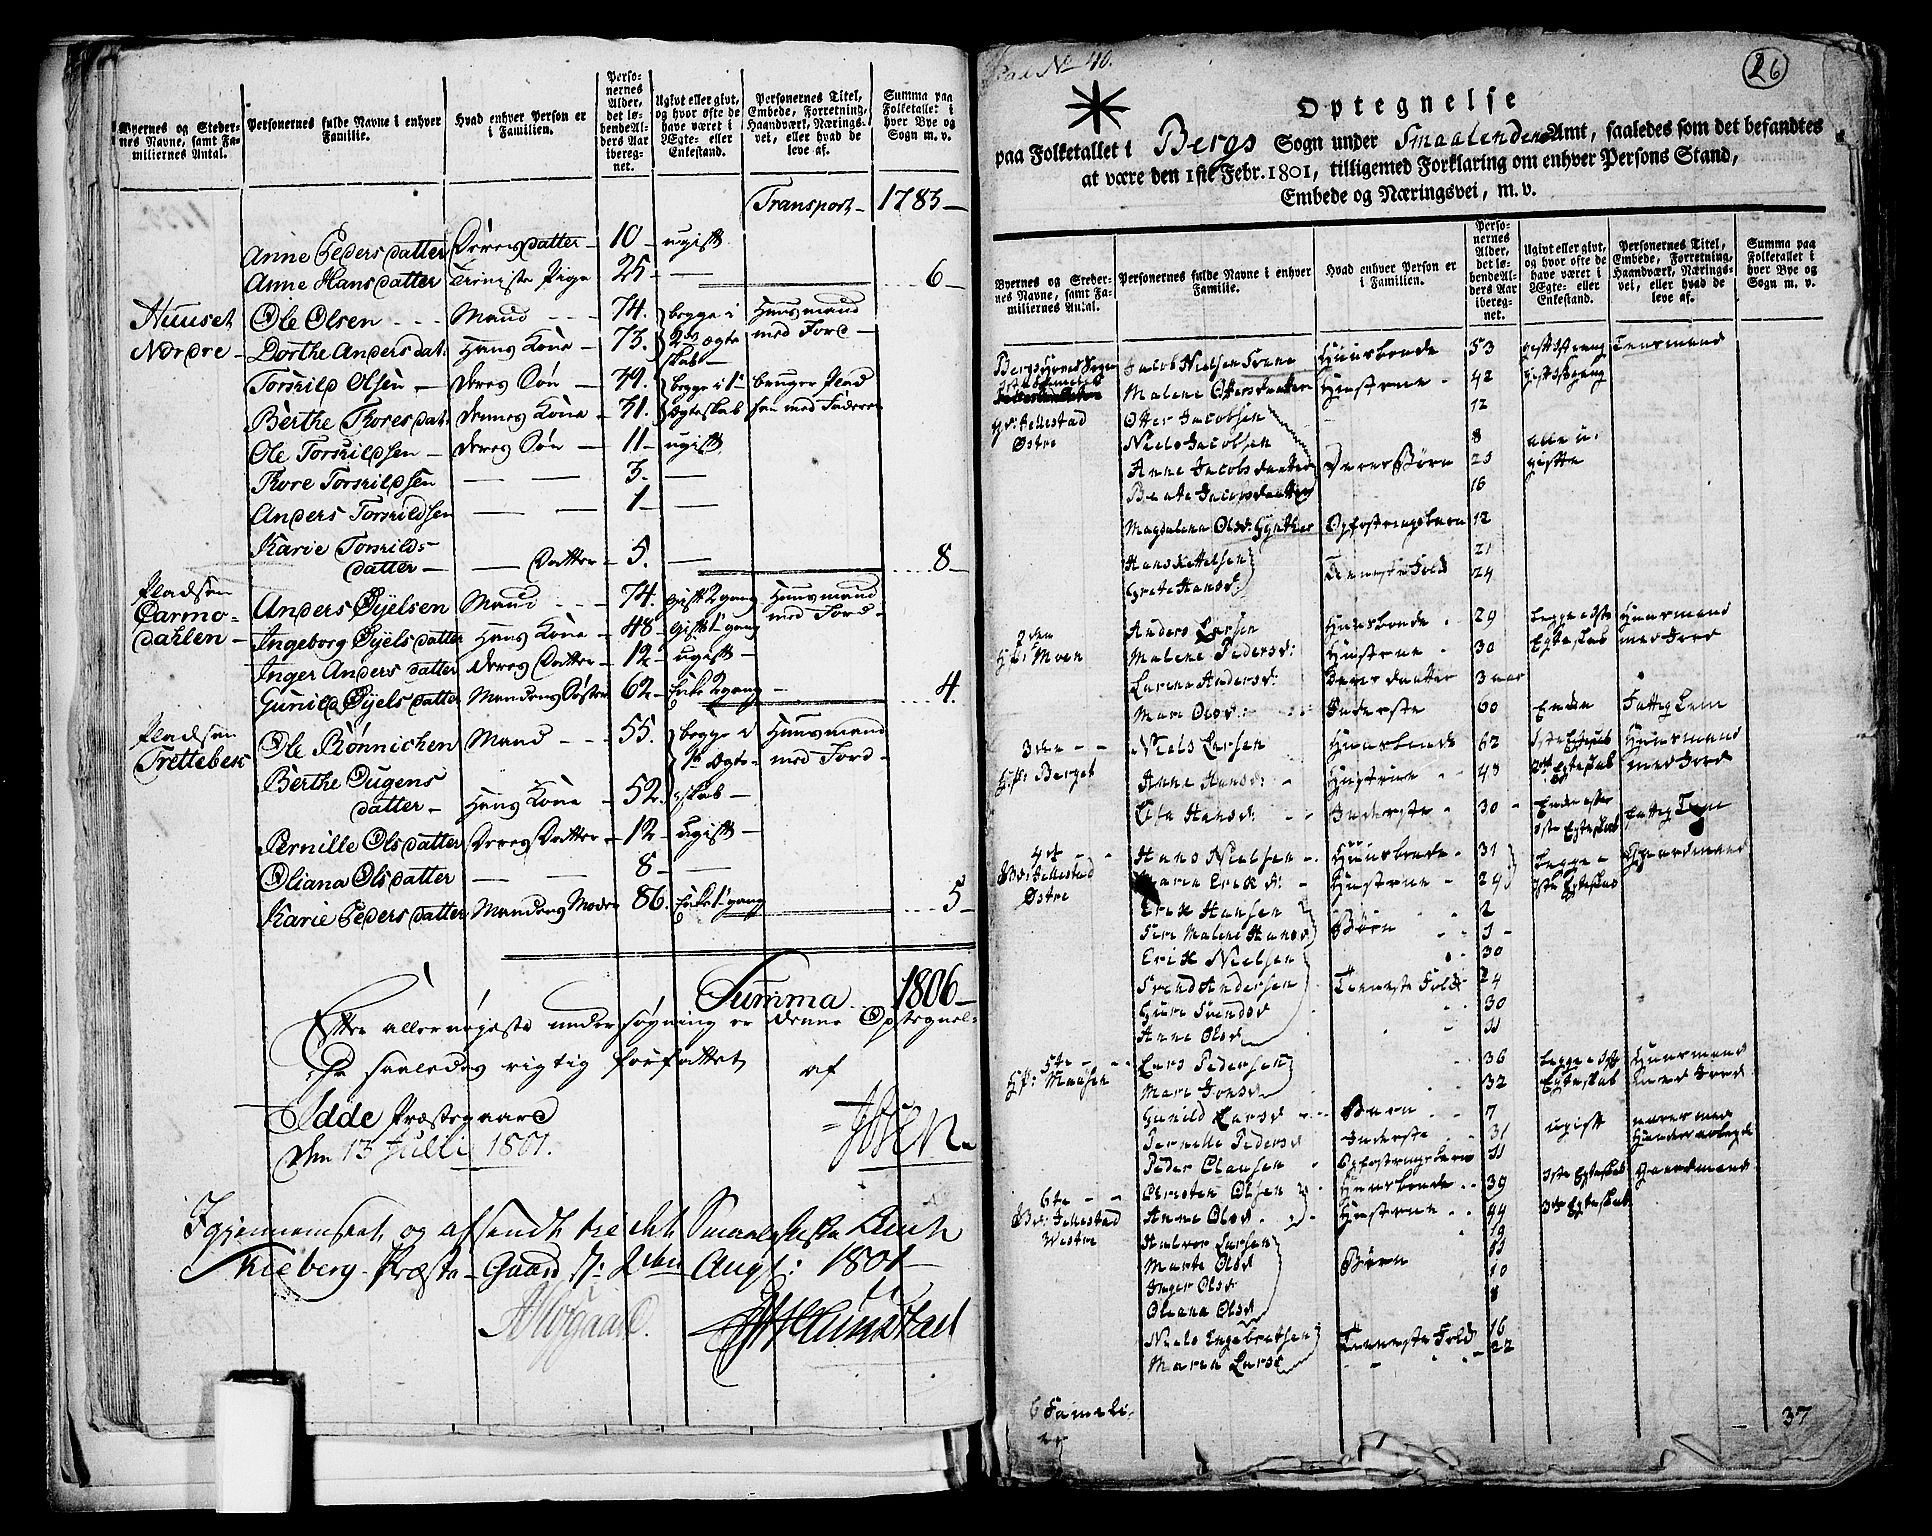 Byernes og Stedernes Navne, samt Familiernes Antal.
Personernes fulde Navne i enhver Familie.
Hvad enhver Person er i Familien.
Personernes Alder, det løbende Alders Aar iberegnet.
Ugivt eller givt, og hvor ofte de have været i Ægte- eller Enkestand.
Personernes Titel, Embede, Forretning, Haandværk, Næringsvei, eller hvad de leve af.
Summa paa Folketallet i hver Bye og Sogn m. v.
Transport - 1783 -
Anne Peders datter Deres datter - 10 - ugift
Anne Hans datter Tieniste Pige 25 - — 6 -
Huuset Ole Olsen - - - Mand - - - 74. begge i Huusmand
Nordre - Dorthe Anders dat. Hans Kone - 73. 2det ægte med Jord -
skab -
Torkild Olsen - deres Søn - 49. begge i 1te bruger Plad
Berthe Thores dat. dennes Kone - 31. Ægteskab sen med Faderen
Ole Torkildsen - deres Søn - 11 - ugift
Thore Torkildsen — — 3. —
Anders Torkildsen — — 1 - —
Karie Torkilds
datter - — Datter - 5. — 8 -
Pladsen
Anders Gjelsen Mand - - - 74. gift 2 gang Huusmand
dahlen - Ingeborg Gjels datter Hans Kone - 48 - gift 1te gang med Jord -
Inger Anders datter deres Datter - 12 - ugift -
Gunild Gjels datter Mandens Søster 62 - Enke 2 gang - 4.
Pladsen
Trettebek Ole Rønnichen Mand - - - 55. begge i Huusmand
Berthe Ougens 1te Ægte- med Jord -
datter - Hans Kone - 52. skab -
Pernille Ols datter Deres Datter - 12 - ugift -
Oliana Ols datter — — 8 - —
Karie Peders datter Mandens Moder 86. Enke 1te gang 5 -
Summa 1806 -
Efter allernøjeste undersøgning er denne Optegnel-
se saaledes rigtig forfattet af
Idde Præstegaard
den 13 Julli 1801.
Igjennemseet og afsendt til det Smaalehnske Amt
Skieberg Præste-Gaard d: 2den Augs: 1801 -
No 40.
26
Optegnelse
paa Folketallet i Bergs Sogn under Smaalendenes Amt, saaledes som det befandtes
at være den 1ste Febr. 1801, tilligemed Forklaring om enhver Persons Stand,
Embede og Næringsvei, m. v.
Byernes og Stedernes Navne, samt Familiernes Antal.
Personernes fulde Navne i enhver Familie.
Hvad enhver Person er i Familien.
Personernes Alder, det løbende Alders Aar iberegnet.
Ugivt eller givt, og hvor ofte de have været i Ægte- eller Enkestand.
Personernes Titel, Embede, Forretning, Haandværk, Næringsvei, eller hvad de leve af.
Summa paa Folketallet i hver Bye og Sogn m. v.
Jacob Nielsen Huusbonde 53 gift 1ste gang Lensmand
Malene Ottersdaatter Hustrue - 42 gift 1ste gang
Gd: Jellestad Otter Jacobsen 12
Østre Niels Jacobsen 8 alle u-
Anne Jacobsdaatter Deres Børn 23 gifte
Beate Jacobsdaatter 16
Magdalena Olsd: Gynther Opfostringsbarn 12
Hans Kittelsen 21
Grete Hansd: Tieneste Folk 24
2den Anders Larsen Huusbonde - 29 begge i 1ste Huusmand
Hp: Moen Malene Pedersd: Hustrue - 30 Egteskab med Jord
Andersd: Deres daatter 3 aar
Mari Olsd: - - Inderste 60 Enke Fattig Lem
3die - - Niels Larsen Huusbonde 62 1ste Egteskab Huusmand
Hp: Berget Anne Hansd: - Hustrue - 48 Egteskab med Jord
Hansd: - - Inderste - 30 - Enke efter
1ste Egteskab Fattig Lem
4de - - Hans Nielsen - Huusbonde - 31 begge i Gaardmand
Gd: Jellestad Maria Eriksd: - Hustrue - 29 1ste Egteskab
Østre Erik Hansen 2
Malene Hansd Børn - - 3 -
Erik Nielsen 30
Svend Andersen Tieneste Folk 24
Guri Svendsd 30
Anne Olsd
5te - - Lars Pedersen 36 begge i 1ste Huusmand
Hp: Maasen Mari Jonsd 32 Egteskab med Jord
Gunild Larsd - - Barn - - 7
Pernelle Pedersd Inderste - 31 ugift nærer med
Haandarbejde
Peder Clausen Opfostringsbarn 11
6te - - Christen Olsen Huusbonde - - 39 1ste Egteskab Gaardmand
Gd: Jellestad Anne Olsd. Hustrue - - 44 2det Egteskab
Westre Halvor Larsen 19
Marte Olsd Børn
Inger Olsd 10
Oleana Olsd 8
Niels Engebretsen Tieneste Folk 16
Maria Larsd 22
6 Famili-
er
37